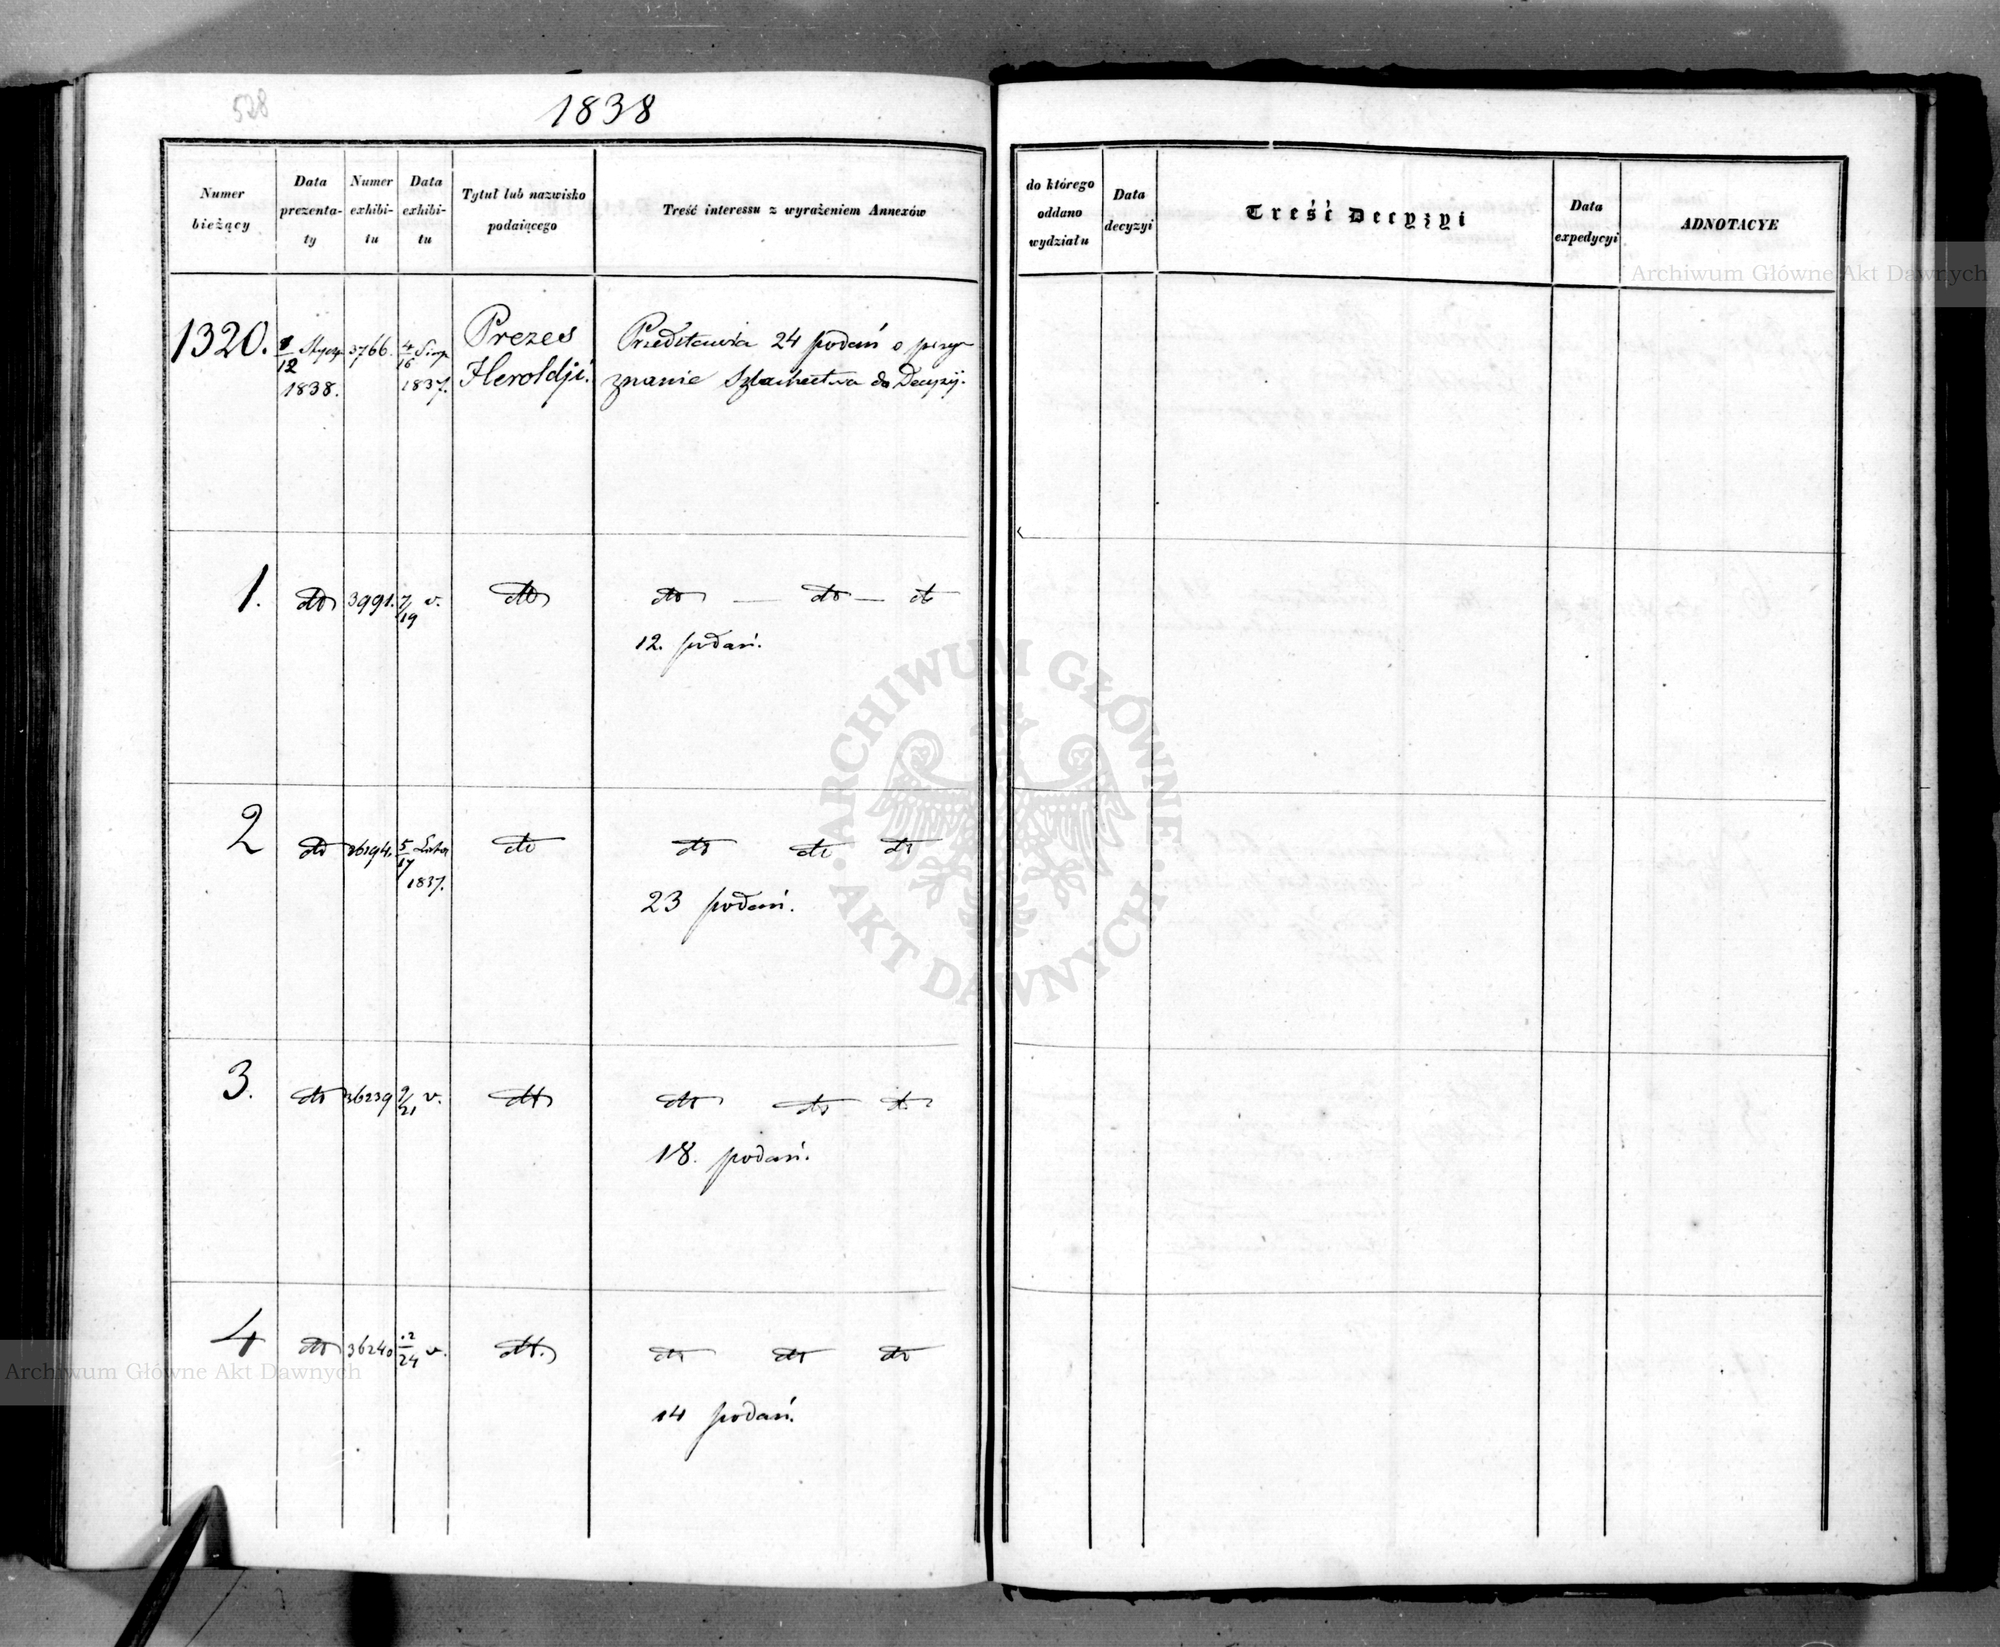 528
1838
Numer bieżący
Data prezenta-ty
Numer exhibi-tu
Data exhibi-tu
Tytuł lub nazwisko podaiącego
Treść interessu z wyrażeniem Annexów
do którego oddano wydziału
Data decyzyi
Treść Decyzyi
Data expedycyi
ADNOTACYE
Archiwum Główne Akt Dawnych
1320.
12
1838.
3766.
4/16 Sierp
1837.
Prezes
Heroldji.
Przedstawia 24 podań o przy-
znanie Szlachectwa do Decyzij.
1. dto 3991. 7/19 v. dto dto — dto — dto
12. podań.
2 dto 36194. 5/17 1837. dto dto dto dto
23 podań.
3. dto 36239 9/21 v. dto dto dto dto
18. podań.
4 dto 36240 12/24 v. dto. dto dto dto
14 podań.
ARCHIWUM GŁÓWNE
AKT DAWNYCH
Archiwum Główne Akt Dawnych